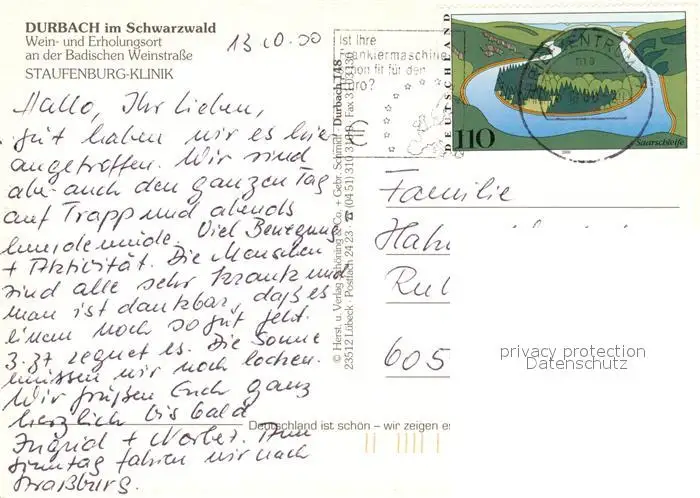 DURBACH im Schwarzwald
Wein- und Erholungsort
an der Badischen Weinstraße
STAUFENBURG-KLINIK
13.10.00
Hallo, Ihr Lieben,
gut haben wir es hier
angetroffen. Wir sind
aber auch den ganzen Tag
auf Trapp und abends
hundemüde. Viel Bewegung
+ Aktivität. Die Menschen
sind alle sehr krank und
man ist dankbar, daß es
einem noch so gut geht.
Die Sonne
z.Zt regnet es.
müssen wir noch locken.
Wir grüßen Euch ganz
herzlich bis bald
Ingrid + Norbert.
Sonntag fahren wir nach
Straßburg.
© Herst. u. Verlag Schöning & Co. + Gebr. Schmidt · Durbach 148
23512 Lübeck · Postfach 24 23 · ☎ (04 51) 310 3
Ist Ihre
Frankiermaschine
schon fit für den
Euro?
DEUTSCHLAND
110
Saarschleife
2000
BRIEFZENTRUM
Familie
Hah
Ru
605
privacy protection
Datenschutz
Deutschland ist schön – wir zeigen es